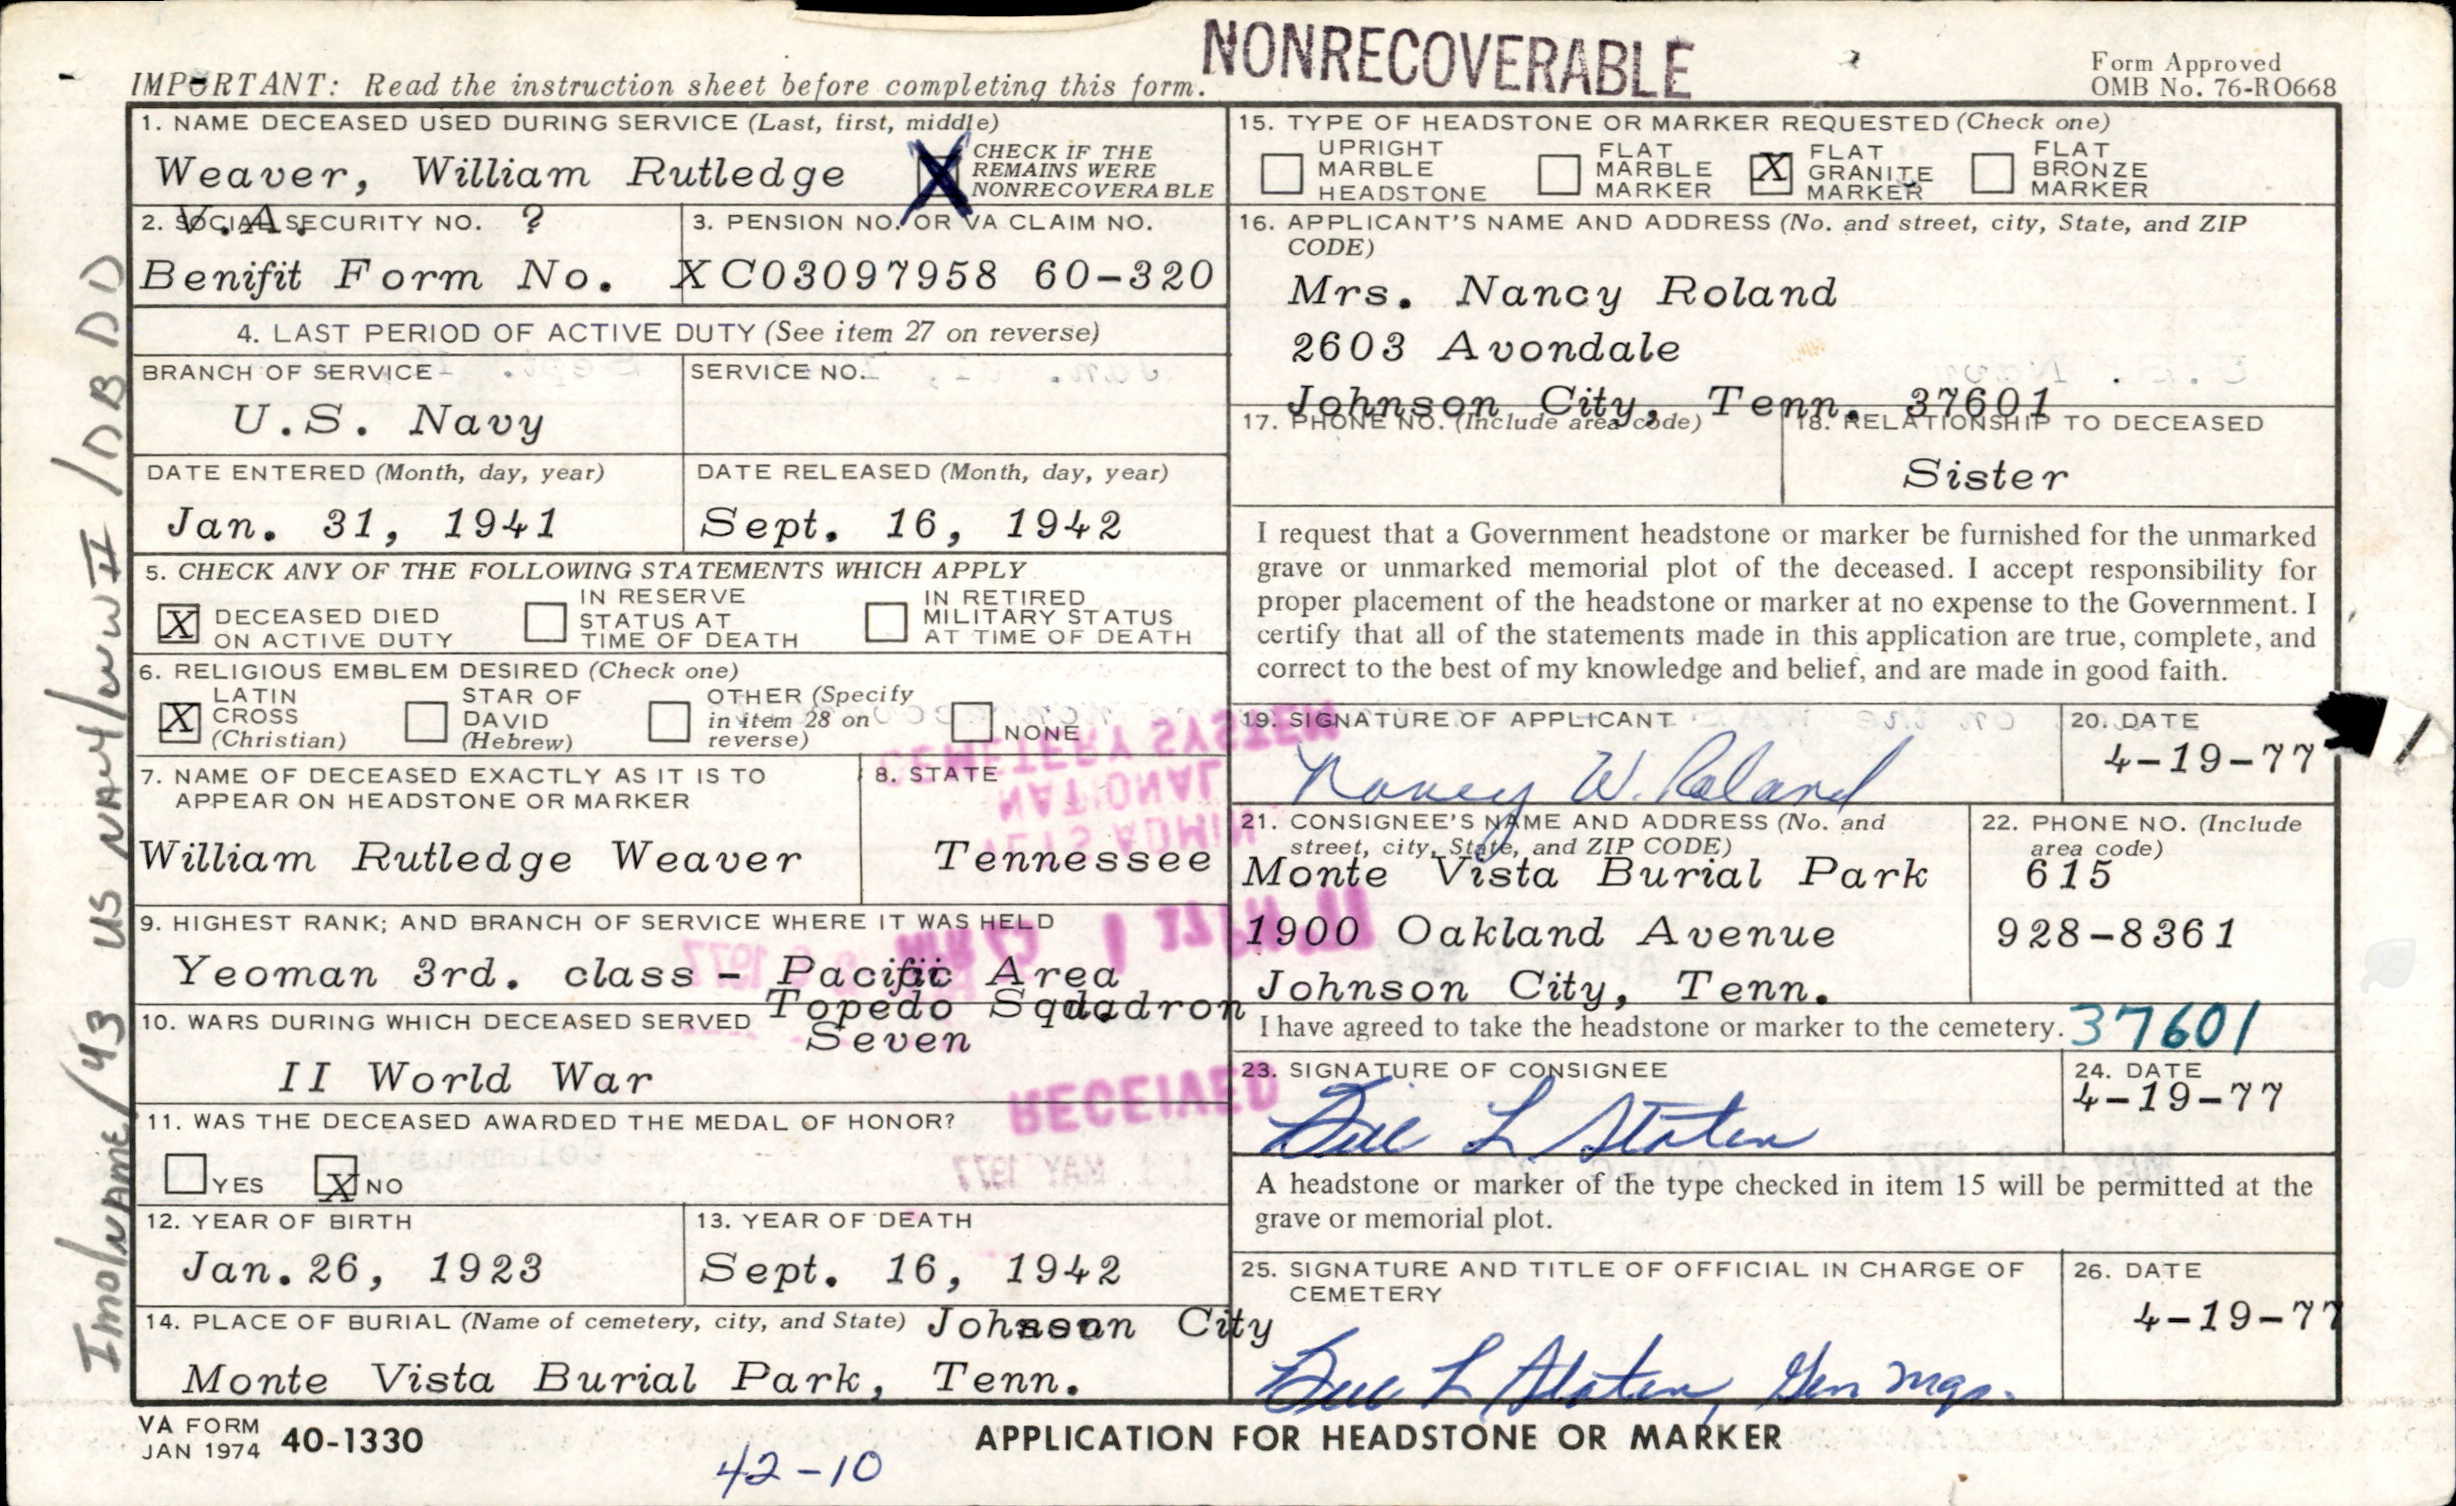 NONRECOVERABLE
IMPORTANT: Read the instruction sheet before completing this form.
Form Approved
OMB No. 76-RO668
1. NAME DECEASED USED DURING SERVICE (Last, first, middle)
Weaver, William Rutledge
X CHECK IF THE
REMAINS WERE
NONRECOVERABLE
2. SOCIAL SECURITY NO. ?
V.A.
3. PENSION NO. OR VA CLAIM NO.
Benifit Form No. XC03097958 60-320
4. LAST PERIOD OF ACTIVE DUTY (See item 27 on reverse)
BRANCH OF SERVICE
U.S. Navy
SERVICE NO.
DATE ENTERED (Month, day, year)
Jan. 31, 1941
DATE RELEASED (Month, day, year)
Sept. 16, 1942
5. CHECK ANY OF THE FOLLOWING STATEMENTS WHICH APPLY
X DECEASED DIED
ON ACTIVE DUTY
IN RESERVE
STATUS AT
TIME OF DEATH
IN RETIRED
MILITARY STATUS
AT TIME OF DEATH
6. RELIGIOUS EMBLEM DESIRED (Check one)
X LATIN
CROSS
(Christian)
STAR OF
DAVID
(Hebrew)
OTHER (Specify
in item 28 on
reverse)
NONE
7. NAME OF DECEASED EXACTLY AS IT IS TO
APPEAR ON HEADSTONE OR MARKER
William Rutledge Weaver
8. STATE
Tennessee
9. HIGHEST RANK; AND BRANCH OF SERVICE WHERE IT WAS HELD
Yeoman 3rd. class - Pacific Area
Topedo Sqdadron
Seven
10. WARS DURING WHICH DECEASED SERVED
II World War
11. WAS THE DECEASED AWARDED THE MEDAL OF HONOR?
YES
X NO
12. YEAR OF BIRTH
Jan.26, 1923
13. YEAR OF DEATH
Sept. 16, 1942
14. PLACE OF BURIAL (Name of cemetery, city, and State) Johnson City
Monte Vista Burial Park, Tenn.
15. TYPE OF HEADSTONE OR MARKER REQUESTED (Check one)
UPRIGHT
MARBLE
HEADSTONE
FLAT
MARBLE
MARKER
X FLAT
GRANITE
MARKER
FLAT
BRONZE
MARKER
16. APPLICANT'S NAME AND ADDRESS (No. and street, city, State, and ZIP
CODE)
Mrs. Nancy Roland
2603 Avondale
Johnson City, Tenn. 37601
17. PHONE NO. (Include area code)
18. RELATIONSHIP TO DECEASED
Sister
I request that a Government headstone or marker be furnished for the unmarked
grave or unmarked memorial plot of the deceased. I accept responsibility for
proper placement of the headstone or marker at no expense to the Government. I
certify that all of the statements made in this application are true, complete, and
correct to the best of my knowledge and belief, and are made in good faith.
19. SIGNATURE OF APPLICANT
Nancy W. Roland
20. DATE
4-19-77
21. CONSIGNEE'S NAME AND ADDRESS (No. and
street, city, State, and ZIP CODE)
Monte Vista Burial Park
1900 Oakland Avenue
Johnson City, Tenn.
22. PHONE NO. (Include
area code)
615
928-8361
I have agreed to take the headstone or marker to the cemetery. 37601
23. SIGNATURE OF CONSIGNEE
L. Staten
24. DATE
4-19-77
A headstone or marker of the type checked in item 15 will be permitted at the
grave or memorial plot.
25. SIGNATURE AND TITLE OF OFFICIAL IN CHARGE OF
CEMETERY
L Staten, Gen Mgr.
26. DATE
4-19-77
VA FORM
JAN 1974 40-1330
APPLICATION FOR HEADSTONE OR MARKER
42-10
Imo/NAME/43 US NAVY/WW II/DBDD
CEMETERY SYSTEM
NATIONAL
RECEIVED
MAY 1977